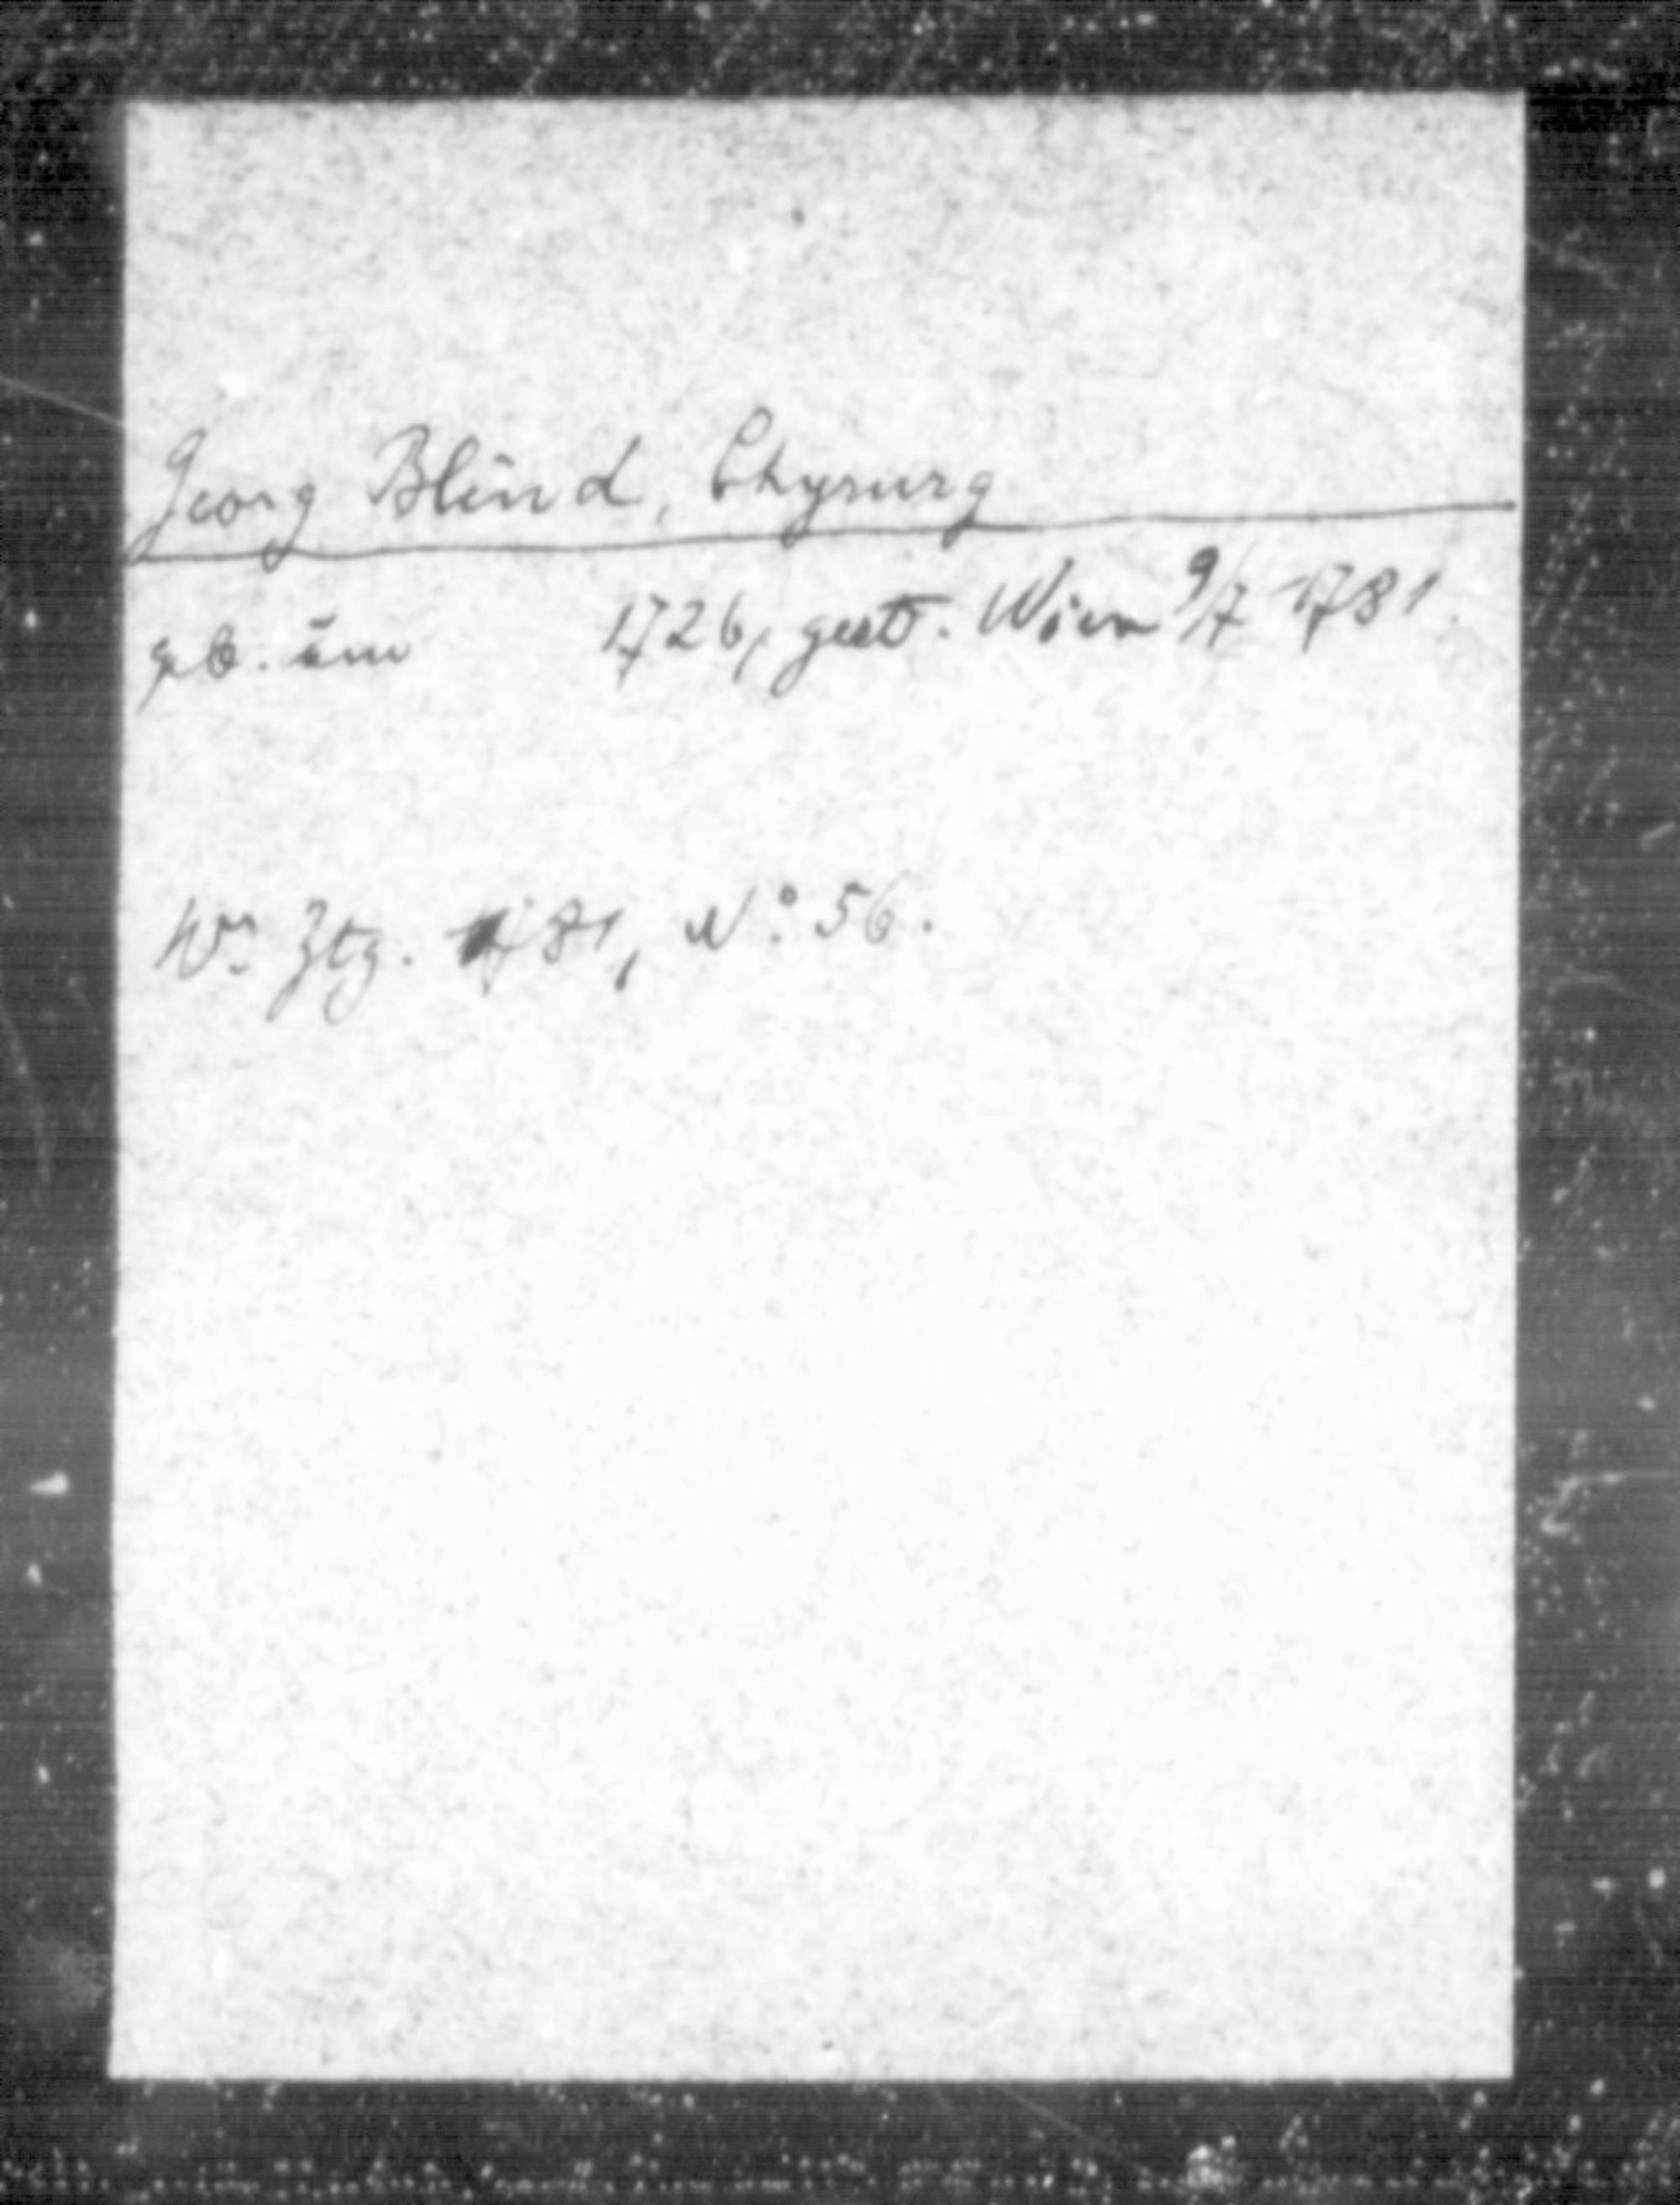 Georg Blind, Chyrurg
geb. um 1726, gest. Wien 9/7 1781.
Wr. Ztg. 1781, No. 56.